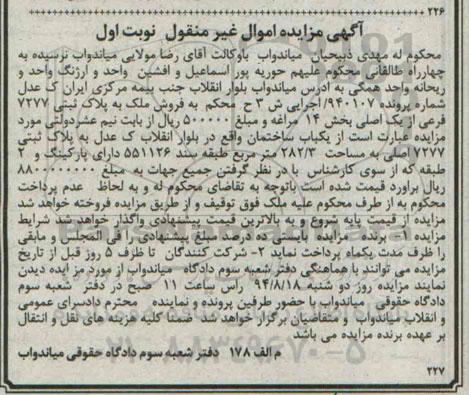 ۲۲۶
آگهی مزایده اموال غیر منقول نوبت اول
محکوم له مهدی ذبیحیان میاندواب باوکالت آقای رضا مولایی میاندواب نرسیده به
چهارراه طالقانی محکوم علیهم حوریه پور اسماعیل و افشین واحد و ارژنگ واحد و
ریحانه واحد همگی به آدرس میاندواب بلوار انقلاب جنب بیمه مرکزی ایران ک عدل
شماره پرونده ۹۴۰۱۰۷/ اجرایی ش ۳ ح محکم به فروش ملک به پلاک ثبتی ۷۲۷۷
فرعی از یک اصلی بخش ۱۴ مراغه و مبلغ ۵۰۰۰۰۰ ریال از بابت نیم عشردولتی مورد
مزایده عبارت است از یکباب ساختمان واقع در بلوار انقلاب ک عدل به پلاک ثبتی
۷۲۷۷اصلی به مساحت ۲۸۲/۳ متر مربع طبقه سند ۵۵۱۱۲۶ دارای پارکینگ و ۲
طبقه که از سوی کارشناس با در نظر گرفتن جمیع جهات به مبلغ ۸۸۰۰۰۰۰۰۰۰
ریال برآورد قیمت شده است باتوجه به تقاضای محکوم له و به لحاظ عدم پرداخت
محکوم به از طرف محکوم علیه ملک فوق توقیف و از طریق مزایده فروخته خواهد شد
مزایده از قیمت پایه شروع و به بالاترین قیمت پیشنهادی واگذار خواهد شد شرایط
مزایده ۱- برنده مزایده بایستی ده درصد مبلغ پیشنهادی را فی المجلس و مابقی
را ظرف مدت یکماه پرداخت نماید ۲- شرکت کنندگان تا ظرف ۵ روز قبل از تاریخ
مزایده می توانند با هماهنگی دفتر شعبه سوم دادگاه میاندواب از مورد مزایده دیدن
نمایند مزایده روز دو شنبه ۹۴/۸/۱۸ راس ساعت ۱۱ صبح در دفتر شعبه سوم
دادگاه حقوقی میاندواب با حضور طرفین پرونده و نماینده محترم دادسرای عمومی
و انقلاب میاندواب و متقاضیان برگزار خواهد شد ضمنا کلیه هزینه های نقل و انتقال
بر عهده برنده مزایده می باشد
م الف ۱۷۸ دفتر شعبه سوم دادگاه حقوقی میاندواب
۲۲۷